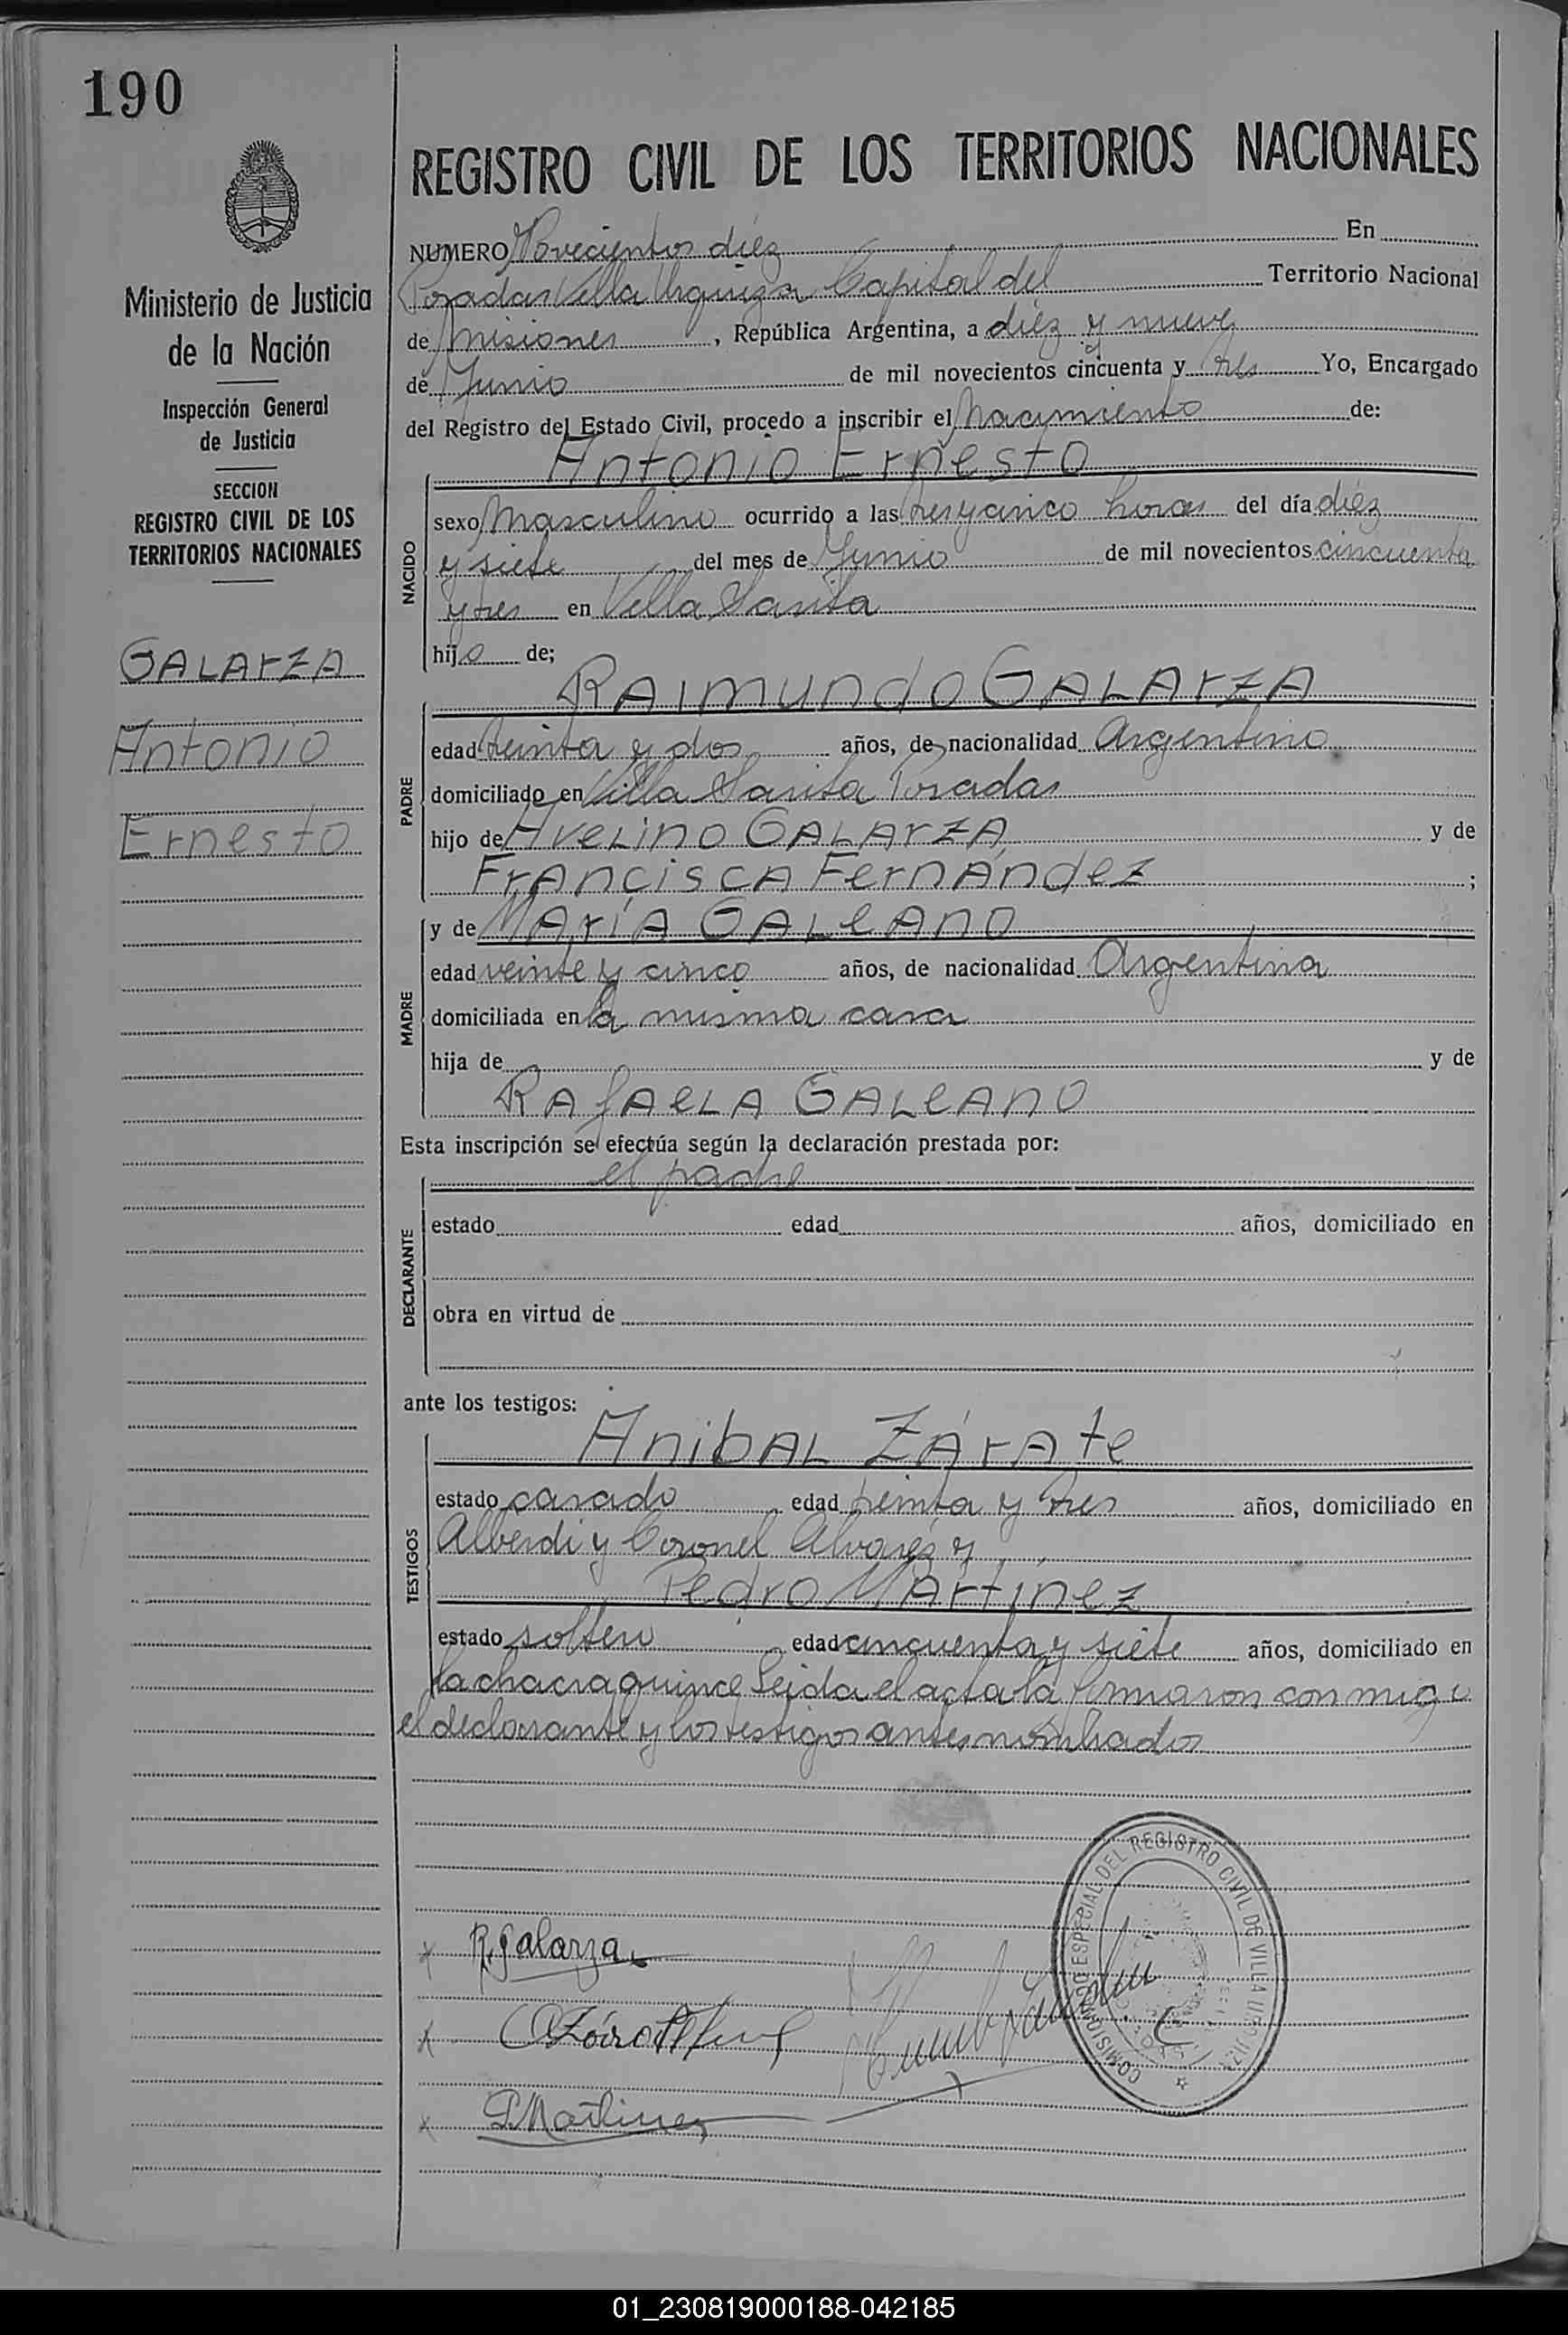 190
REGISTRO CIVIL DE LOS TERRITORIOS NACIONALES
Ministerio de Justicia
de la Nación
Inspección General
de Justicia
SECCION
REGISTRO CIVIL DE LOS
TERRITORIOS NACIONALES
GALArZA
Antonio
Ernesto
NUMERO Novecientos diéz En
Posadas Villa Urquiza Capital del Territorio Nacional
de Misiones, República Argentina, a diéz y nueve
de Junio de mil novecientos cincuenta y tres Yo, Encargado
del Registro del Estado Civil, procedo a inscribir el Nacimiento de:
Antonio Ernesto
NACIDO
sexo Masculino ocurrido a las tres y cinco horas del día diéz
y siete del mes de Junio de mil novecientos cincuenta
y tres en Villa Sarita
hijo de;
RAimundo GALArzA
PADRE
edad treinta y dos años, de nacionalidad Argentino
domiciliado en Villa Sarita Posadas
hijo de AveLino GALArzA y de
FrAnciscA FernÁndez;
MADRE
y de MArÍA GALeAno
edad veinte y cinco años, de nacionalidad Argentina
domiciliada en la misma casa
hija de y de
RAfAeLA GALeAno
Esta inscripción se efectúa según la declaración prestada por:
el padre
DECLARANTE
estado edad años, domiciliado en
obra en virtud de
ante los testigos:
AnibAL ZÁrAte
TESTIGOS
estado casado edad treinta y tres años, domiciliado en
Alberdi y Coronel Alvaréz y
Pedro MArtínez
estado soltero edad cincuenta y siete años, domiciliado en
la chacra quince Leida el acta la firmaron conmigo
el declarante y los testigos antes nombrados
R. Galarza
P. Martinez
COMISIONADO ESPECIAL DEL REGISTRO CIVIL DE VILLA URQUIZA
01_230819000188-042185